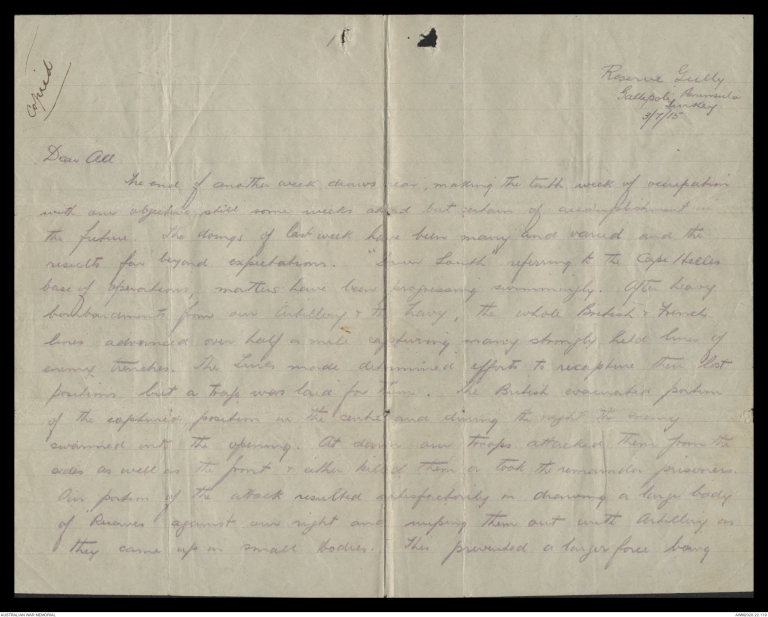 Copied
Reserve Gully
Gallipoli Peninsula
Turkey
3/7/15
Dear All
The end of another week draws near, making the tenth week of occupation
with our objective still some weeks ahead but certain of accomplishment in
the future. The doings of last week have been many and varied and the
results far beyond expectations. "Down South" referring to the Cape Helles
base of operations, matters have been progressing swimmingly. After heavy
bombardments from our Artillery & the Navy, the whole British & French
lines advanced over half a mile capturing many strongly held lines of
enemy trenches. The Turks made determined efforts to recapture their lost
positions but a trap was laid for them. The British evacuated portion
of the captured position in the centre and during the night the enemy
swarmed into the opening. At dawn our troops attacked them from the
sides as well as the front & either killed them or took the remainder prisoners.
Our portion of the attack resulted satisfactorily in drawing a large body
of "Reserves" against our right and wiping them out with Artillery as
they came up in small bodies. This prevented a larger force being
AUSTRALIAN WAR MEMORIAL